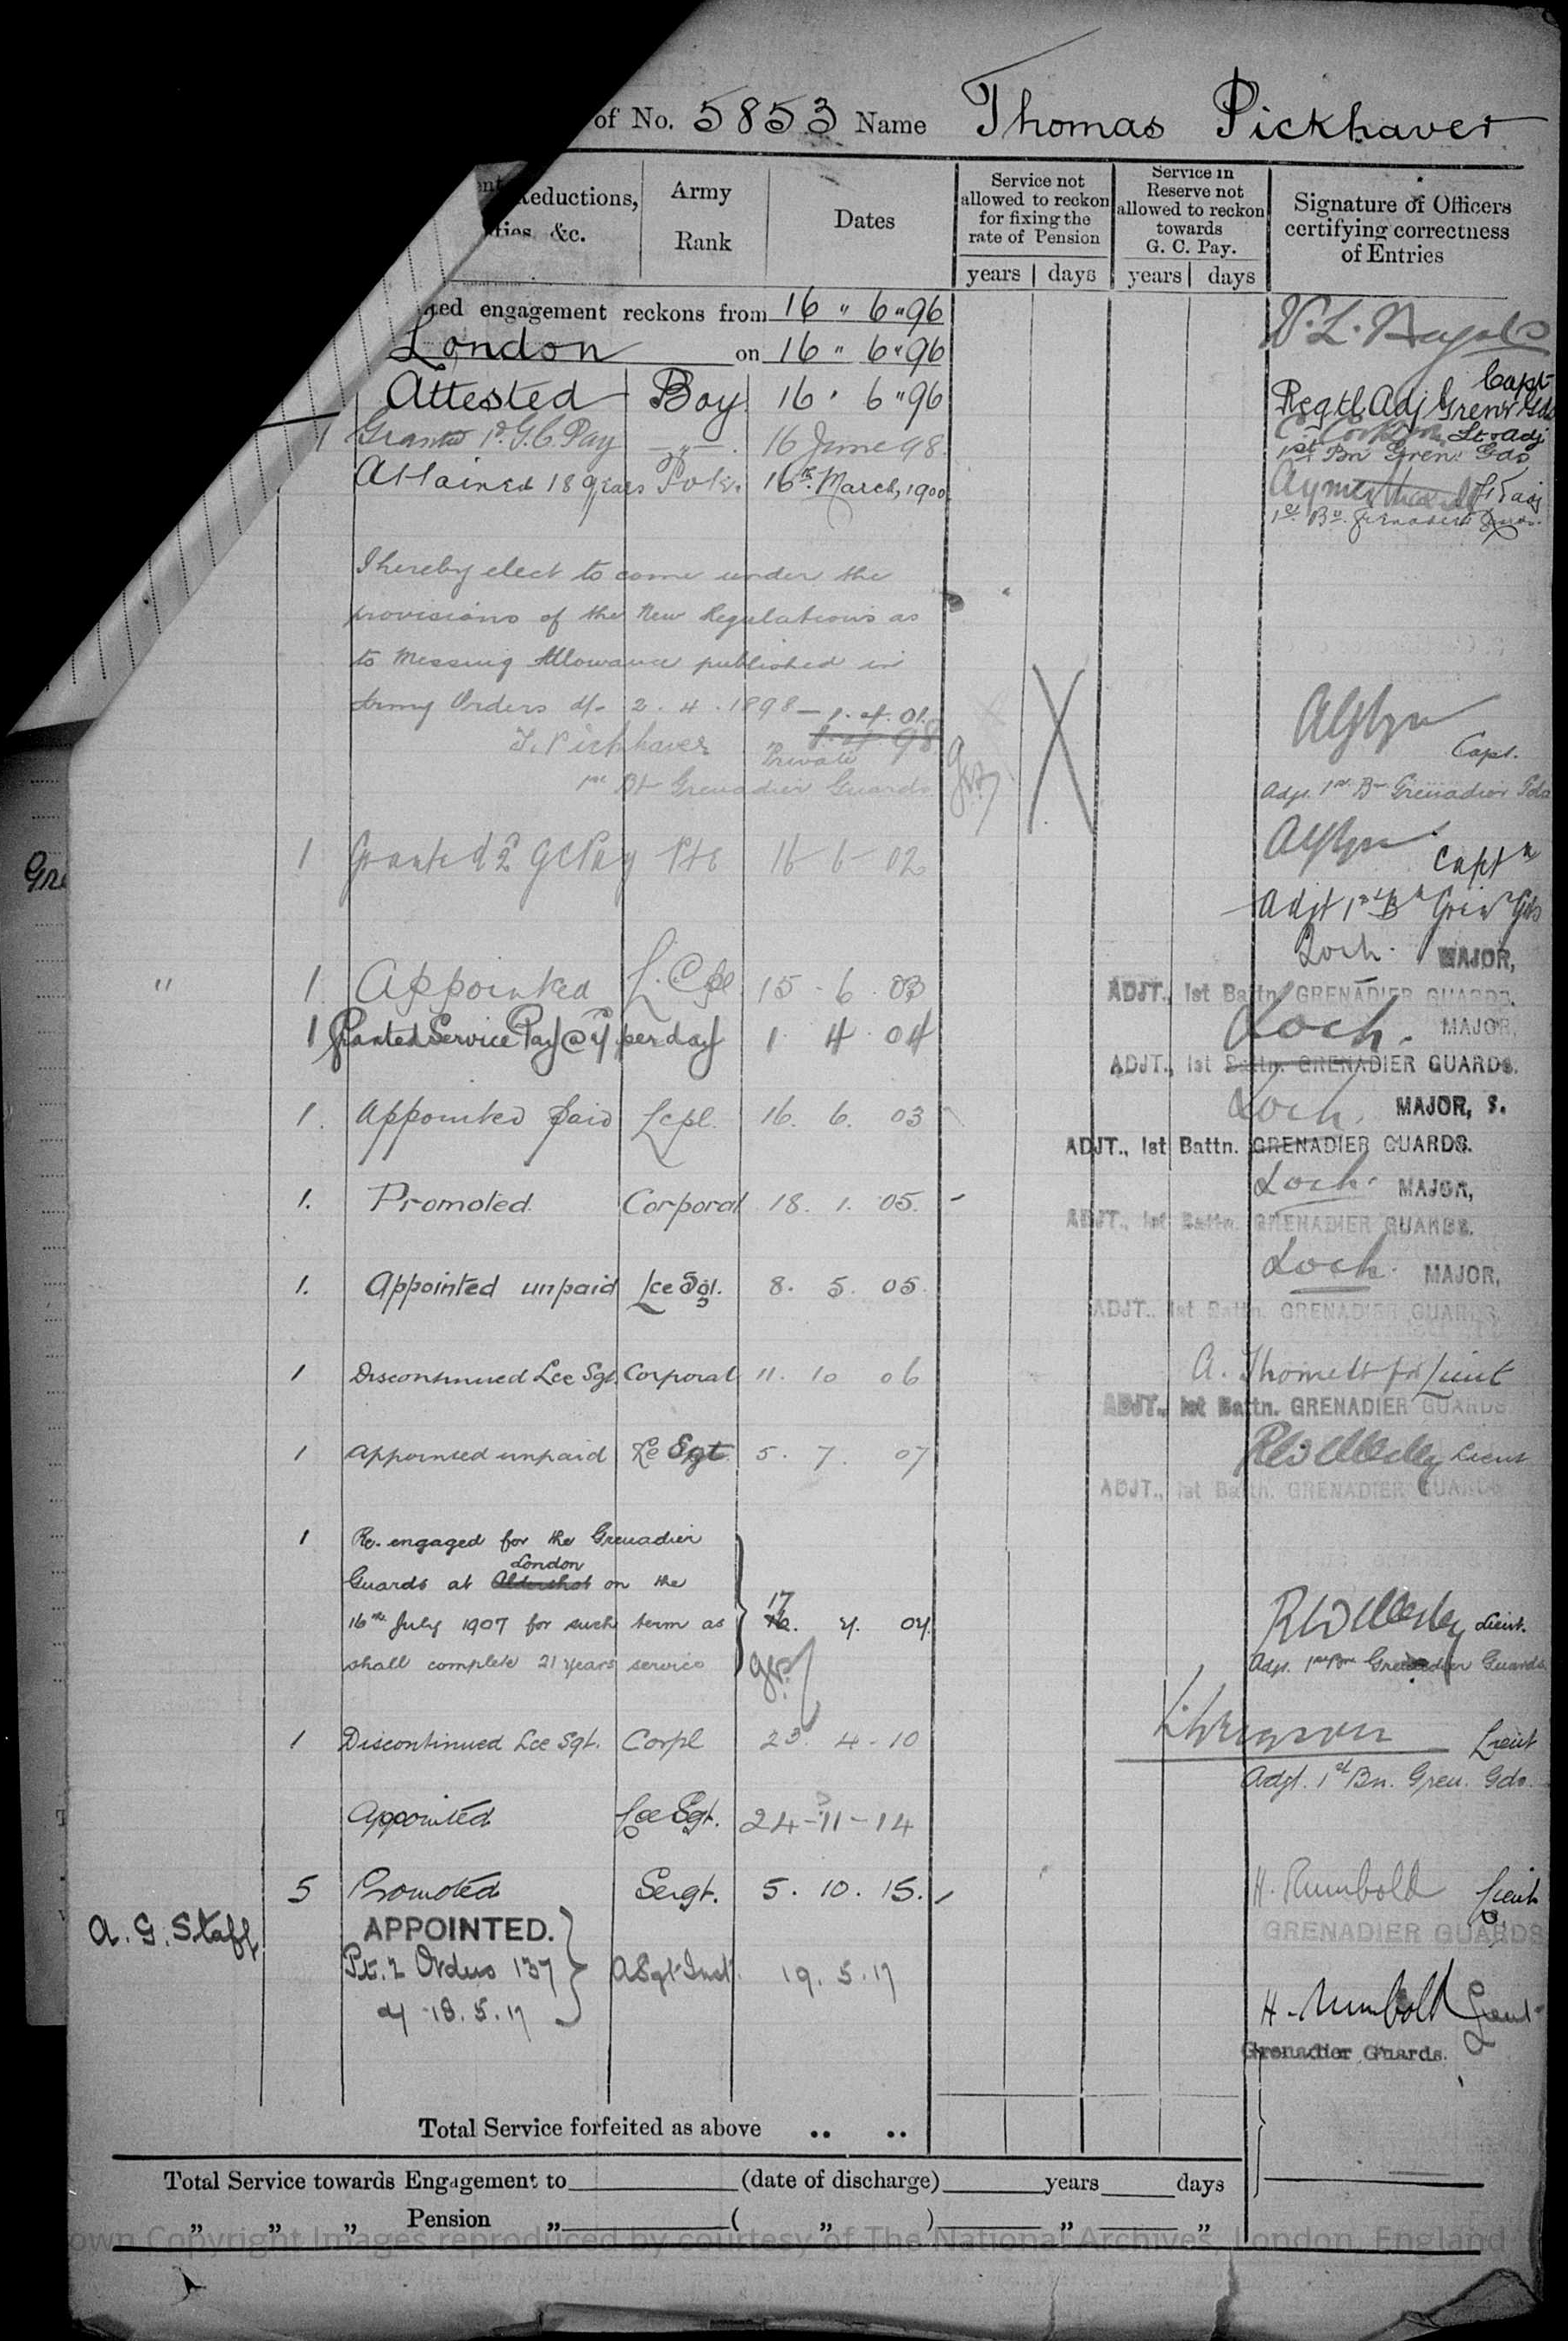 of No. 5853 Name Thomas Pickhaver
Reductions, &c.
Army Rank
Dates
Service not allowed to reckon for fixing the rate of Pension
years days
Service in Reserve not allowed to reckon towards G. C. Pay.
years days
Signature of Officers certifying correctness of Entries
engagement reckons from 16 " 6 " 96
London on 16 " 6 " 96
Attested Boy 16 " 6 " 96
Capt
Regtl Adj Grenr Gds
1 Granted 1d. G.C. Pay " 16 June 98
Lt & Adj
1st Bn Gren: Gds
Attained 18 years Pte. 16th March, 1900
1st Bn Grenadier Guards
I hereby elect to come under the
provisions of the New Regulations as
to Messing Allowance published in
Army Orders d/- 2.4.1898 - 1.4.01.
T. Pickhaver " 1.4.98
Private
1st Bt Grenadier Guards
Capt.
Adjt. 1st Bn Grenadier Gds
1 Granted 2d GC Pay Pte 16-6-02
Captn
Adjt 1st Bn Gren Gds
Loch. MAJOR,
" 1 Appointed L. Cpl. 15.6.03
ADJT., 1st Battn. GRENADIER GUARDS.
1 Granted Service Pay @ per day 1 4 04
Loch. MAJOR,
ADJT., 1st Battn. GRENADIER GUARDS.
1. Appointed paid Lcpl. 16. 6. 03
Loch. MAJOR,
ADJT., 1st Battn. GRENADIER GUARDS.
1. Promoted. Corporal 18. 1. 05.
Loch. MAJOR,
ADJT., 1st Battn. GRENADIER GUARDS.
1. Appointed unpaid Lce Sgt. 8. 5. 05.
Loch. MAJOR,
ADJT., 1st Battn. GRENADIER GUARDS.
1 Discontinued Lce Sgt. Corporal 11. 10 06
Lieut
ADJT., 1st Battn. GRENADIER GUARDS
1 Appointed unpaid Lce Sgt 5. 7. 07
Lieut
ADJT., 1st Battn. GRENADIER GUARDS
1 Re-engaged for the Grenadier
London
Guards at Aldershot on the
16th July 1907 for such term as 17 16. 7. 07.
shall complete 21 years service
Lieut.
Adjt. 1st Bn Grenadier Guards
1 Discontinued Lce Sgt. Corpl 23. 4-10
Lieut
Adjt. 1st Bn. Gren. Gds.
Appointed Lce Sgt. 24-11-14
5 Promoted Sergt. 5. 10. 15.
H. Rumbold Lieut
GRENADIER GUARDS
A. G. Staff APPOINTED.
Pt. 2 Orders 137 A Sgt Inst 19. 5. 17
d/ 18. 5. 17
H. Rumbold Lieut
Grenadier Guards.
Gre
Total Service forfeited as above .. ..
Total Service towards Engagement to (date of discharge) years days
" " " Pension " ( " ) " "
own Copyright Images reproduced by courtesy of The National Archives, London, England